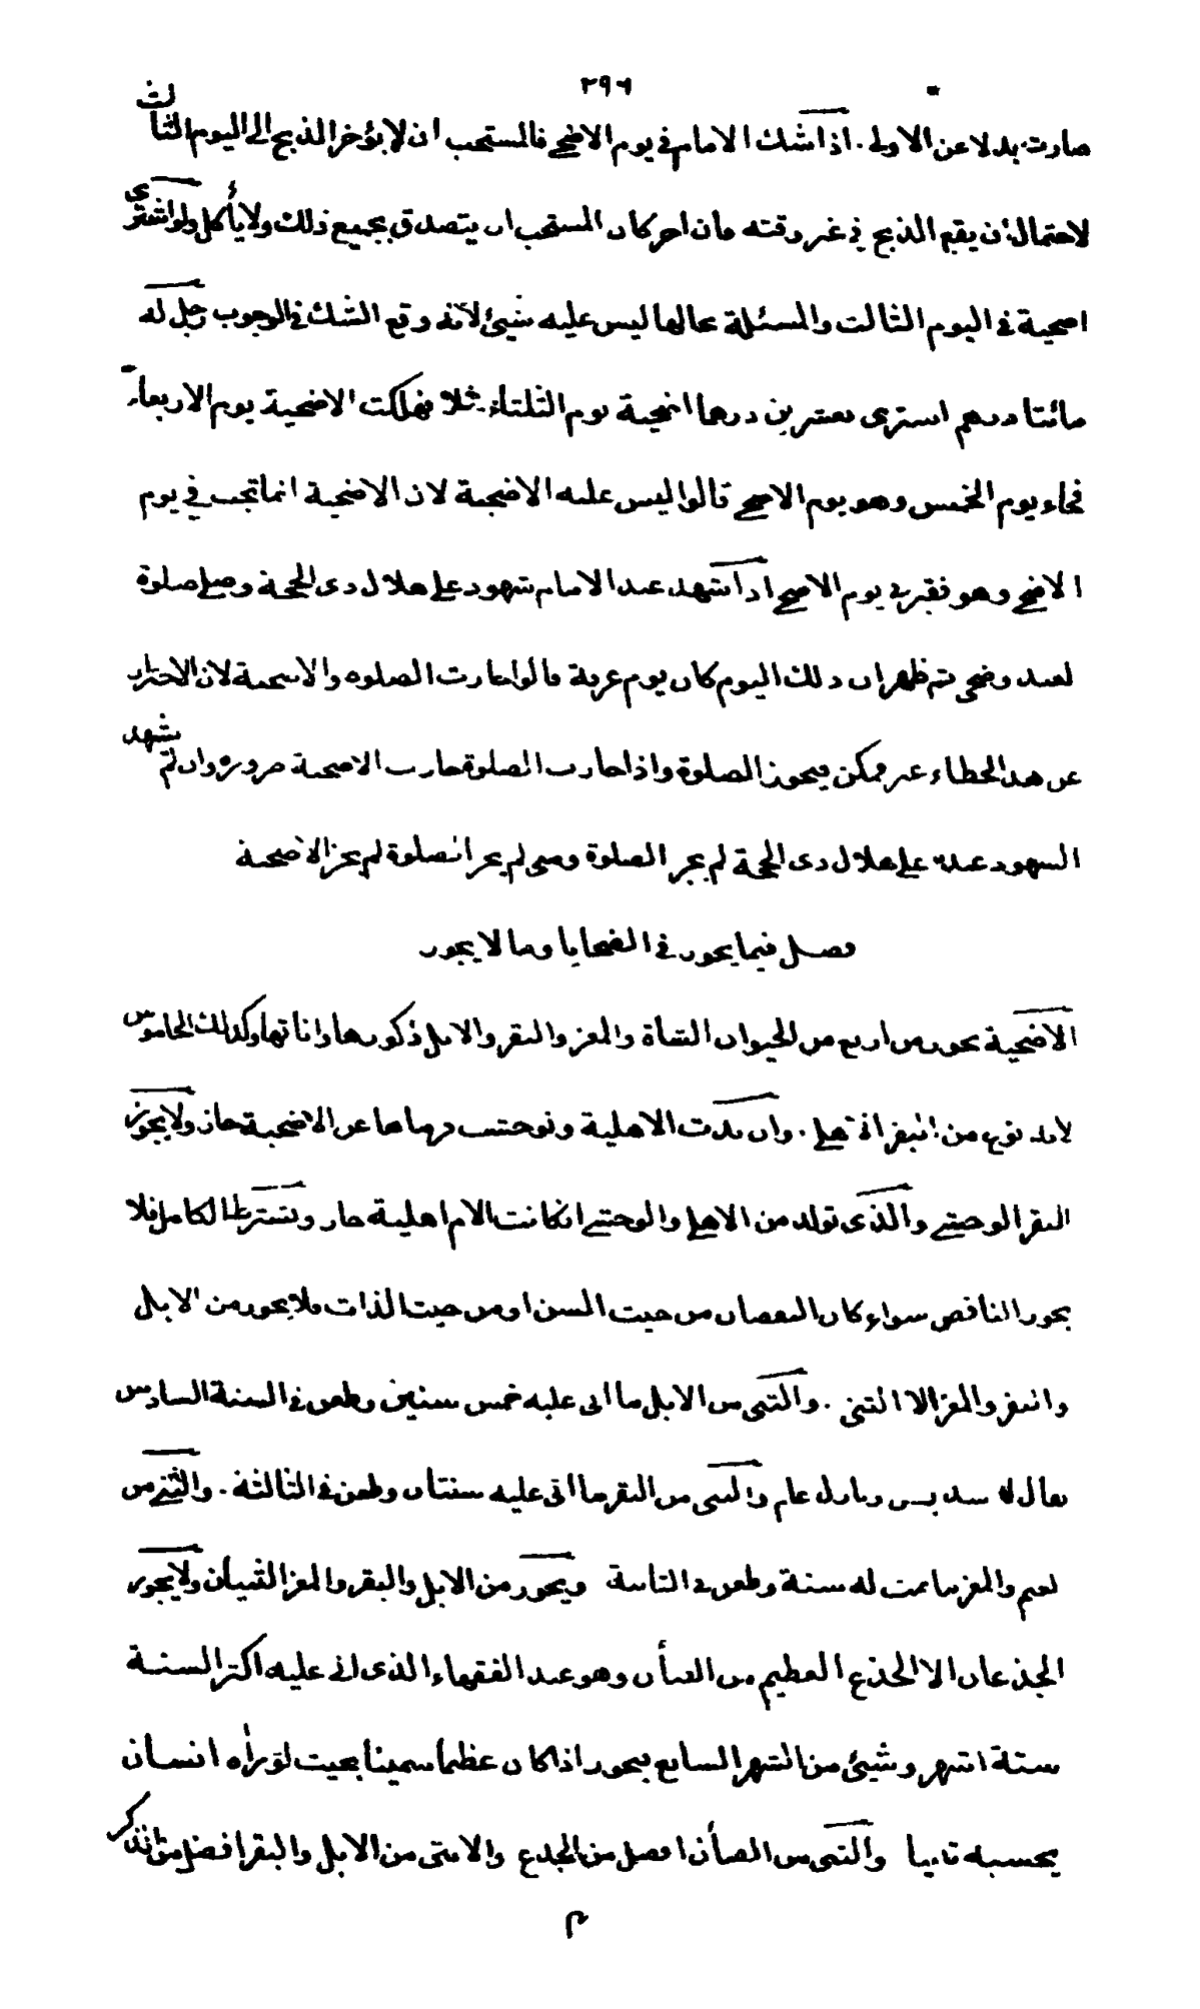 ٢٩٦
صارت بدلا عن الاولى . اذا شك الامام في يوم الاضحى فالمستحب ان لا يؤخر الذبح الى اليوم الثالث
لاحتمال ان يقع الذبح في غير وقته فان اخر كان المستحب ان يتصدق بجميع ذلك ولا يأكل ولو اشترى
اضحية في اليوم الثالث والمسئلة بحالها ليس عليه شيئ لانه وقع الشك في الوجوب رجل له
مائتا درهم اشترى بعشرين درهما اضحية يوم الثلثاء مثلا فهلكت الاضحية يوم الاربعاء
فجاء يوم الخميس وهو يوم الاضحى قالوا ليس عليه الاضحية لان الاضحية انما تجب في يوم
الاضحى وهو فقير في يوم الاضحى اذا شهد عند الامام شهود على هلال ذى الحجة وصلى صلوة
لعيد وضحى ثم ظهر ان ذلك اليوم كان يوم عرفة قالوا جازت الصلوة والاضحية لان الاحتراز
عن هذا الخطاء غير ممكن فيجوز الصلوة واذا جازت الصلوة جازت الاضحية ضرورة وان لم تشهد
الشهود عنده على هلال ذى الحجة لم يجز الصلوة ومتى لم يجز الصلوة لم يجز الاضحية
فصل فيما يجوز في الضحايا وما لا يجوز
الاضحية يجوز من اربع من الحيوان الشاة والمعز والبقر والابل ذكورها واناثها وكذلك الجاموس
لانه نوع من البقر الاهلى . وان ندت الاهلية وتوحشت فرماها عن الاضحية جاز ولا يجوز
البقر الوحشى والذى تولد من الاهلى والوحشى ان كانت الام اهلية جاز ويشترط الكامل فلا
يجوز الناقص سواء كان النقصان من حيث السن او من حيث الذات فلا يجوز من الابل
والبقر والمعز الا الثنى . والثنى من الابل ما اتى عليه خمس سنين وطعن في السنة السادس
يقال له سديس وبازل عام والثنى من البقر ما اتى عليه سنتان وطعن في الثالثة . والثنى من
لغنم والمعز ما تمت له سنة وطعن في الثانية ويجوز من الابل والبقر والمعز الثنيان ولا يجوز
الجذعان الا الجذع العظيم من الضأن وهو عند الفقهاء الذى اتى عليه اكثر السنة
ستة اشهر وشيئ من الشهر السابع يجوز اذا كان عظيما سمينا بحيث لو راٰه انسان
يحسبه ثانيا والثنى من الضأن افضل من الجذع والانثى من الابل والبقر افضل من الذكر
م